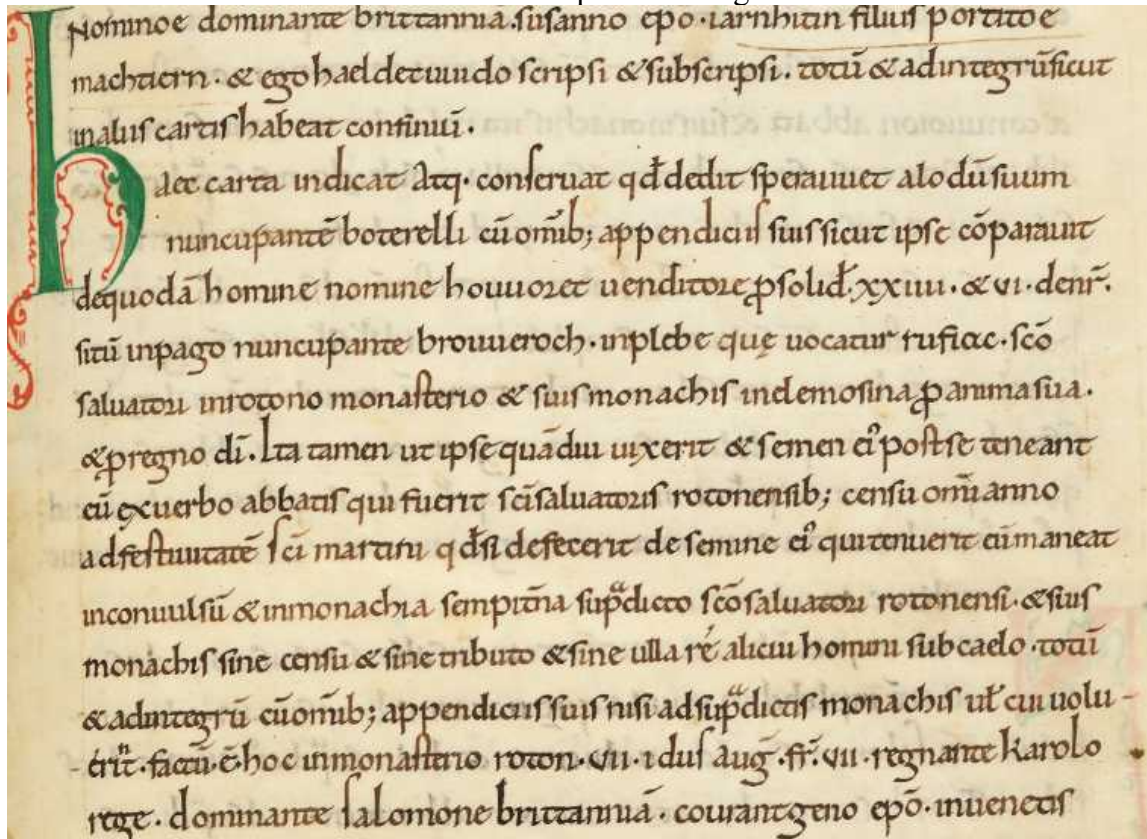 Nominoe dominante brittanniā. susanno ep̄o. iarnhitin filius portitoe
machtiern. & ego haeldetuuido scripsi & subscripsi. totū & adintegrū sicut
inaliis cartis habeat continuū.
Haec carta indicat Atq. conseruat qd̄ dedit sperauuet alodū suum
nuncupantē boterelli cū om̄ib; appendiciis suis sicut ipse cōparauit
dequodā homine nomine houuoret uenditore ꝓ solid̄. xxiiii. & vi. denr̄.
sitū inpago nuncupante brouueroch. inplebe quę uocatur rufiac. sc̄o
saluatori inrotono monasterio & suis monachis inelemosina ꝓ anima sua.
& ꝓ regno dī. Ita tamen ut ipse quādiu uixerit & semen ei᾿ post se teneant
cū ex uerbo abbatis qui fuerit sc̄i saluatoris rotonensib; censu om̄i anno
ad festiuitatē sc̄i martini qd̄ si defecerit de semine ei᾿ qui tenuerit eū maneat
inconuulsū & inmonachia sempit̄na sup̄dicto sc̄o saluatori rotonensi. & suis
monachis sine censu & sine tributo & sine ulla ré alicui homini sub caelo. totū
& adintegrū cū om̄ib; appendiciis suis nisi ad sup̄dictis monachis ul̄ cui uolu-
erit. factū. ē hoc inmonasterio roton. vii. idus aug̃. fr̄. vii. regnante karolo
rege. dominante salomone brittanniā. courantgeno ep̄o. inuenetis